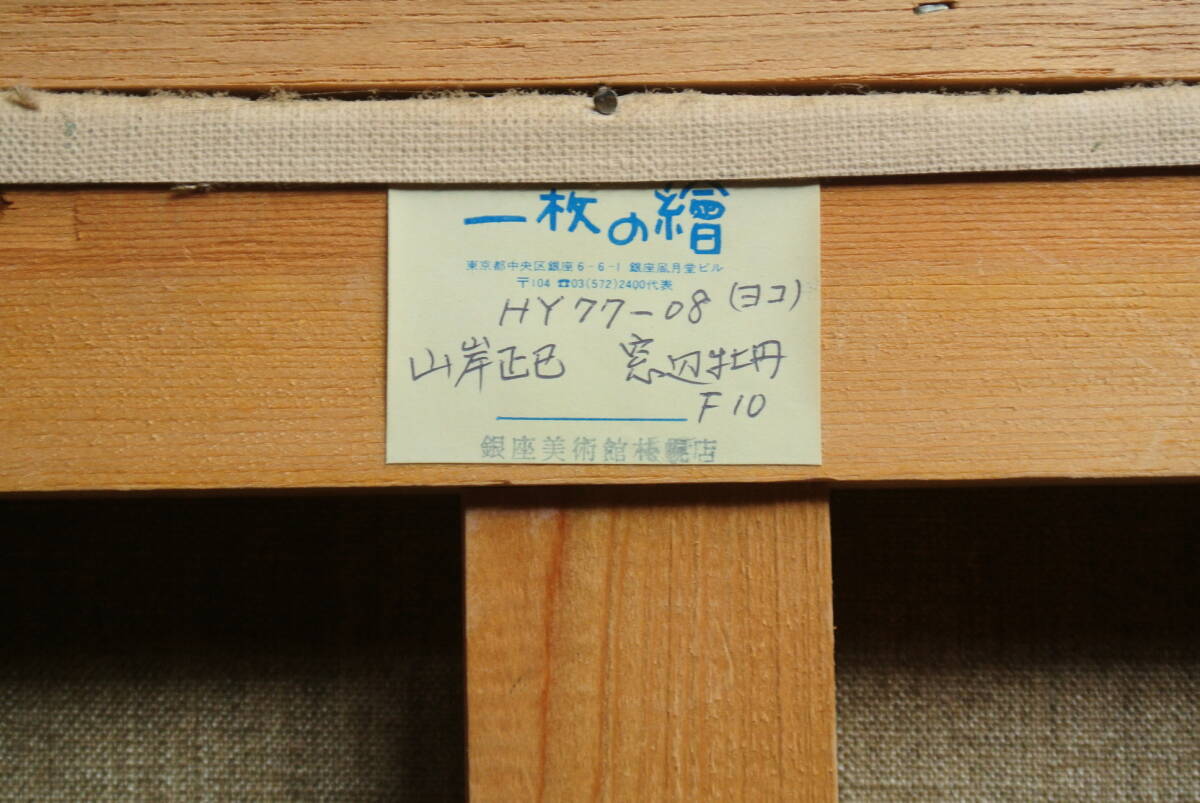 一枚の繪
東京都中央区銀座6-6-1 銀座風月堂ビル
〒104 ☎03(572)2400代表
HY77-08 (ヨコ)
山岸正巳 窓辺牡丹
F10
銀座美術館札幌店